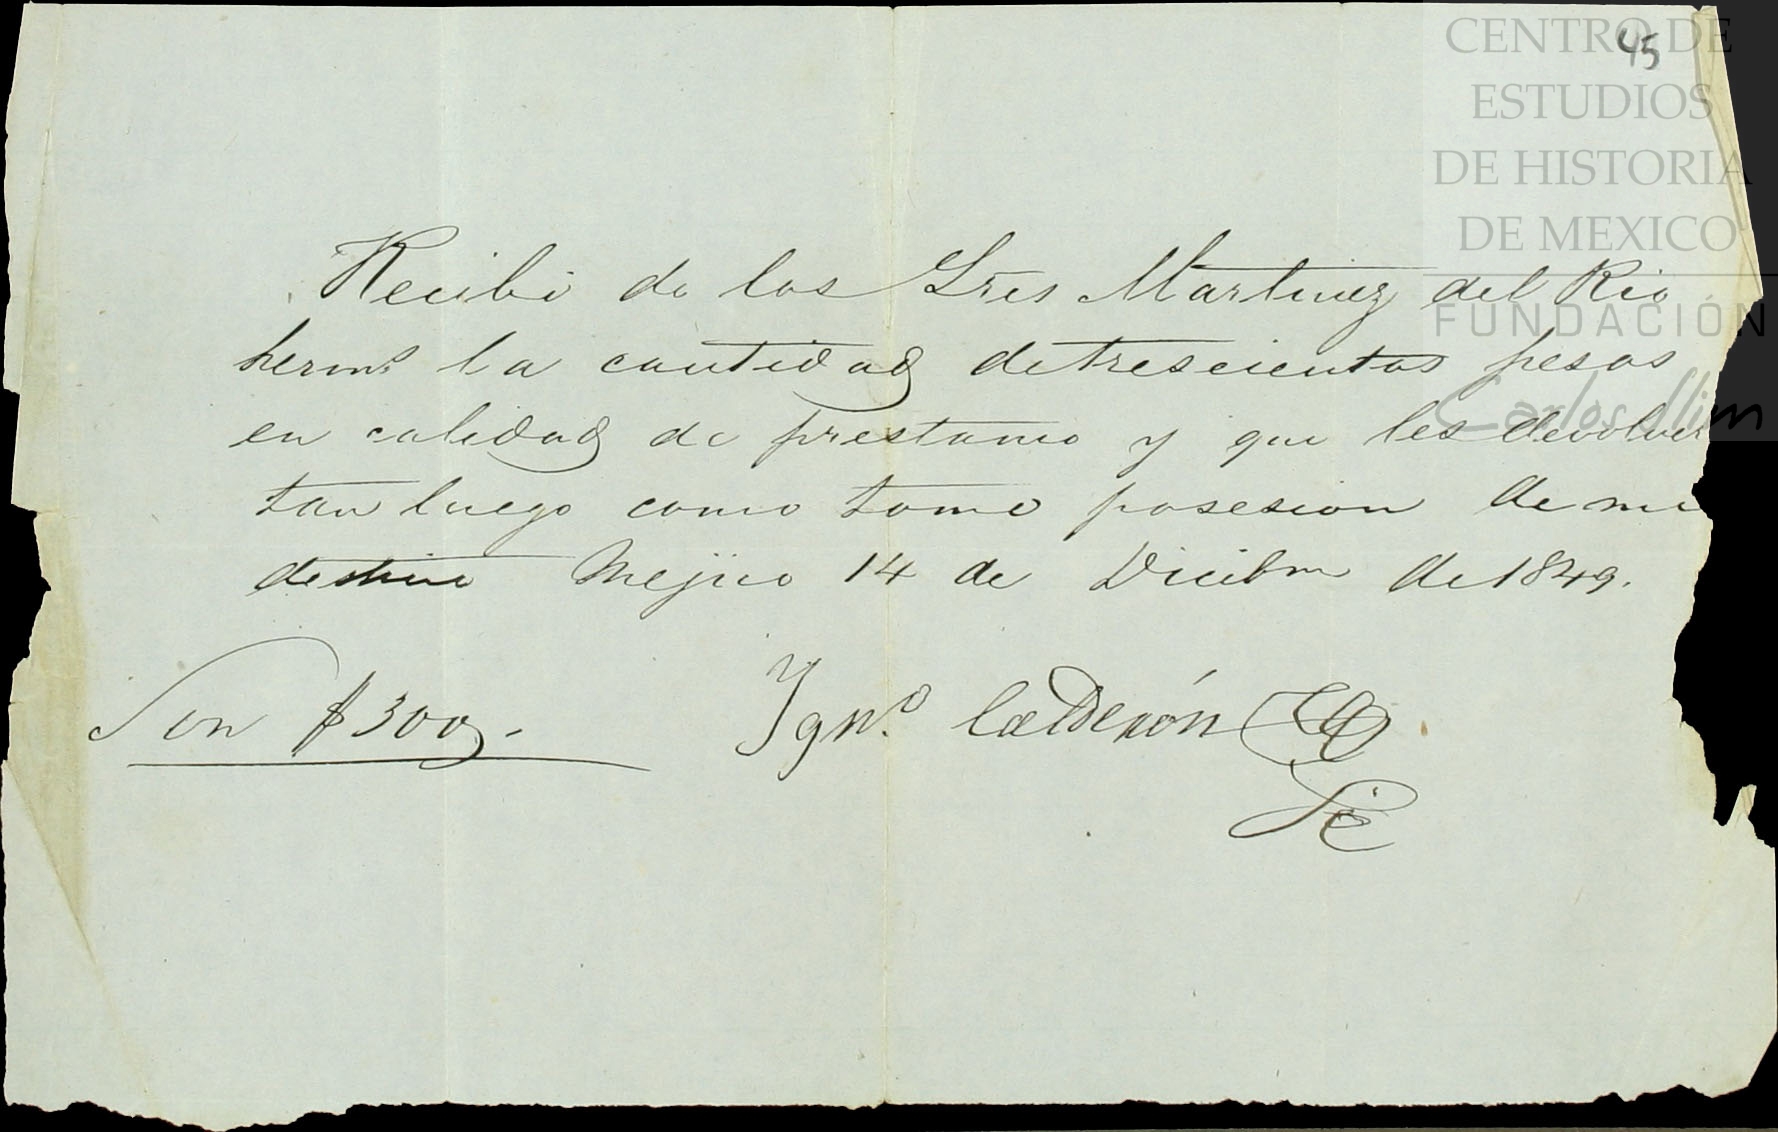 45
CENTRO DE
ESTUDIOS
DE HISTORIA
DE MEXICO
FUNDACIÓN
Carlos Slim
Recibi de los Sres Martinez del Rio
hermˢ la cantidad de trescientos pesos
en calidad de prestamo y que les devolver
tan luego como tome posesion de mi
destino Mejico 14 de Dicibre de 1849.
Son $300,,.
Ygnº Calderón